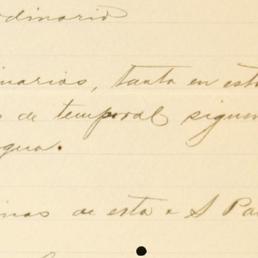 odinario
narias, tanto en esta
s de temporal siguen
gua.
inas de esta a S Pa